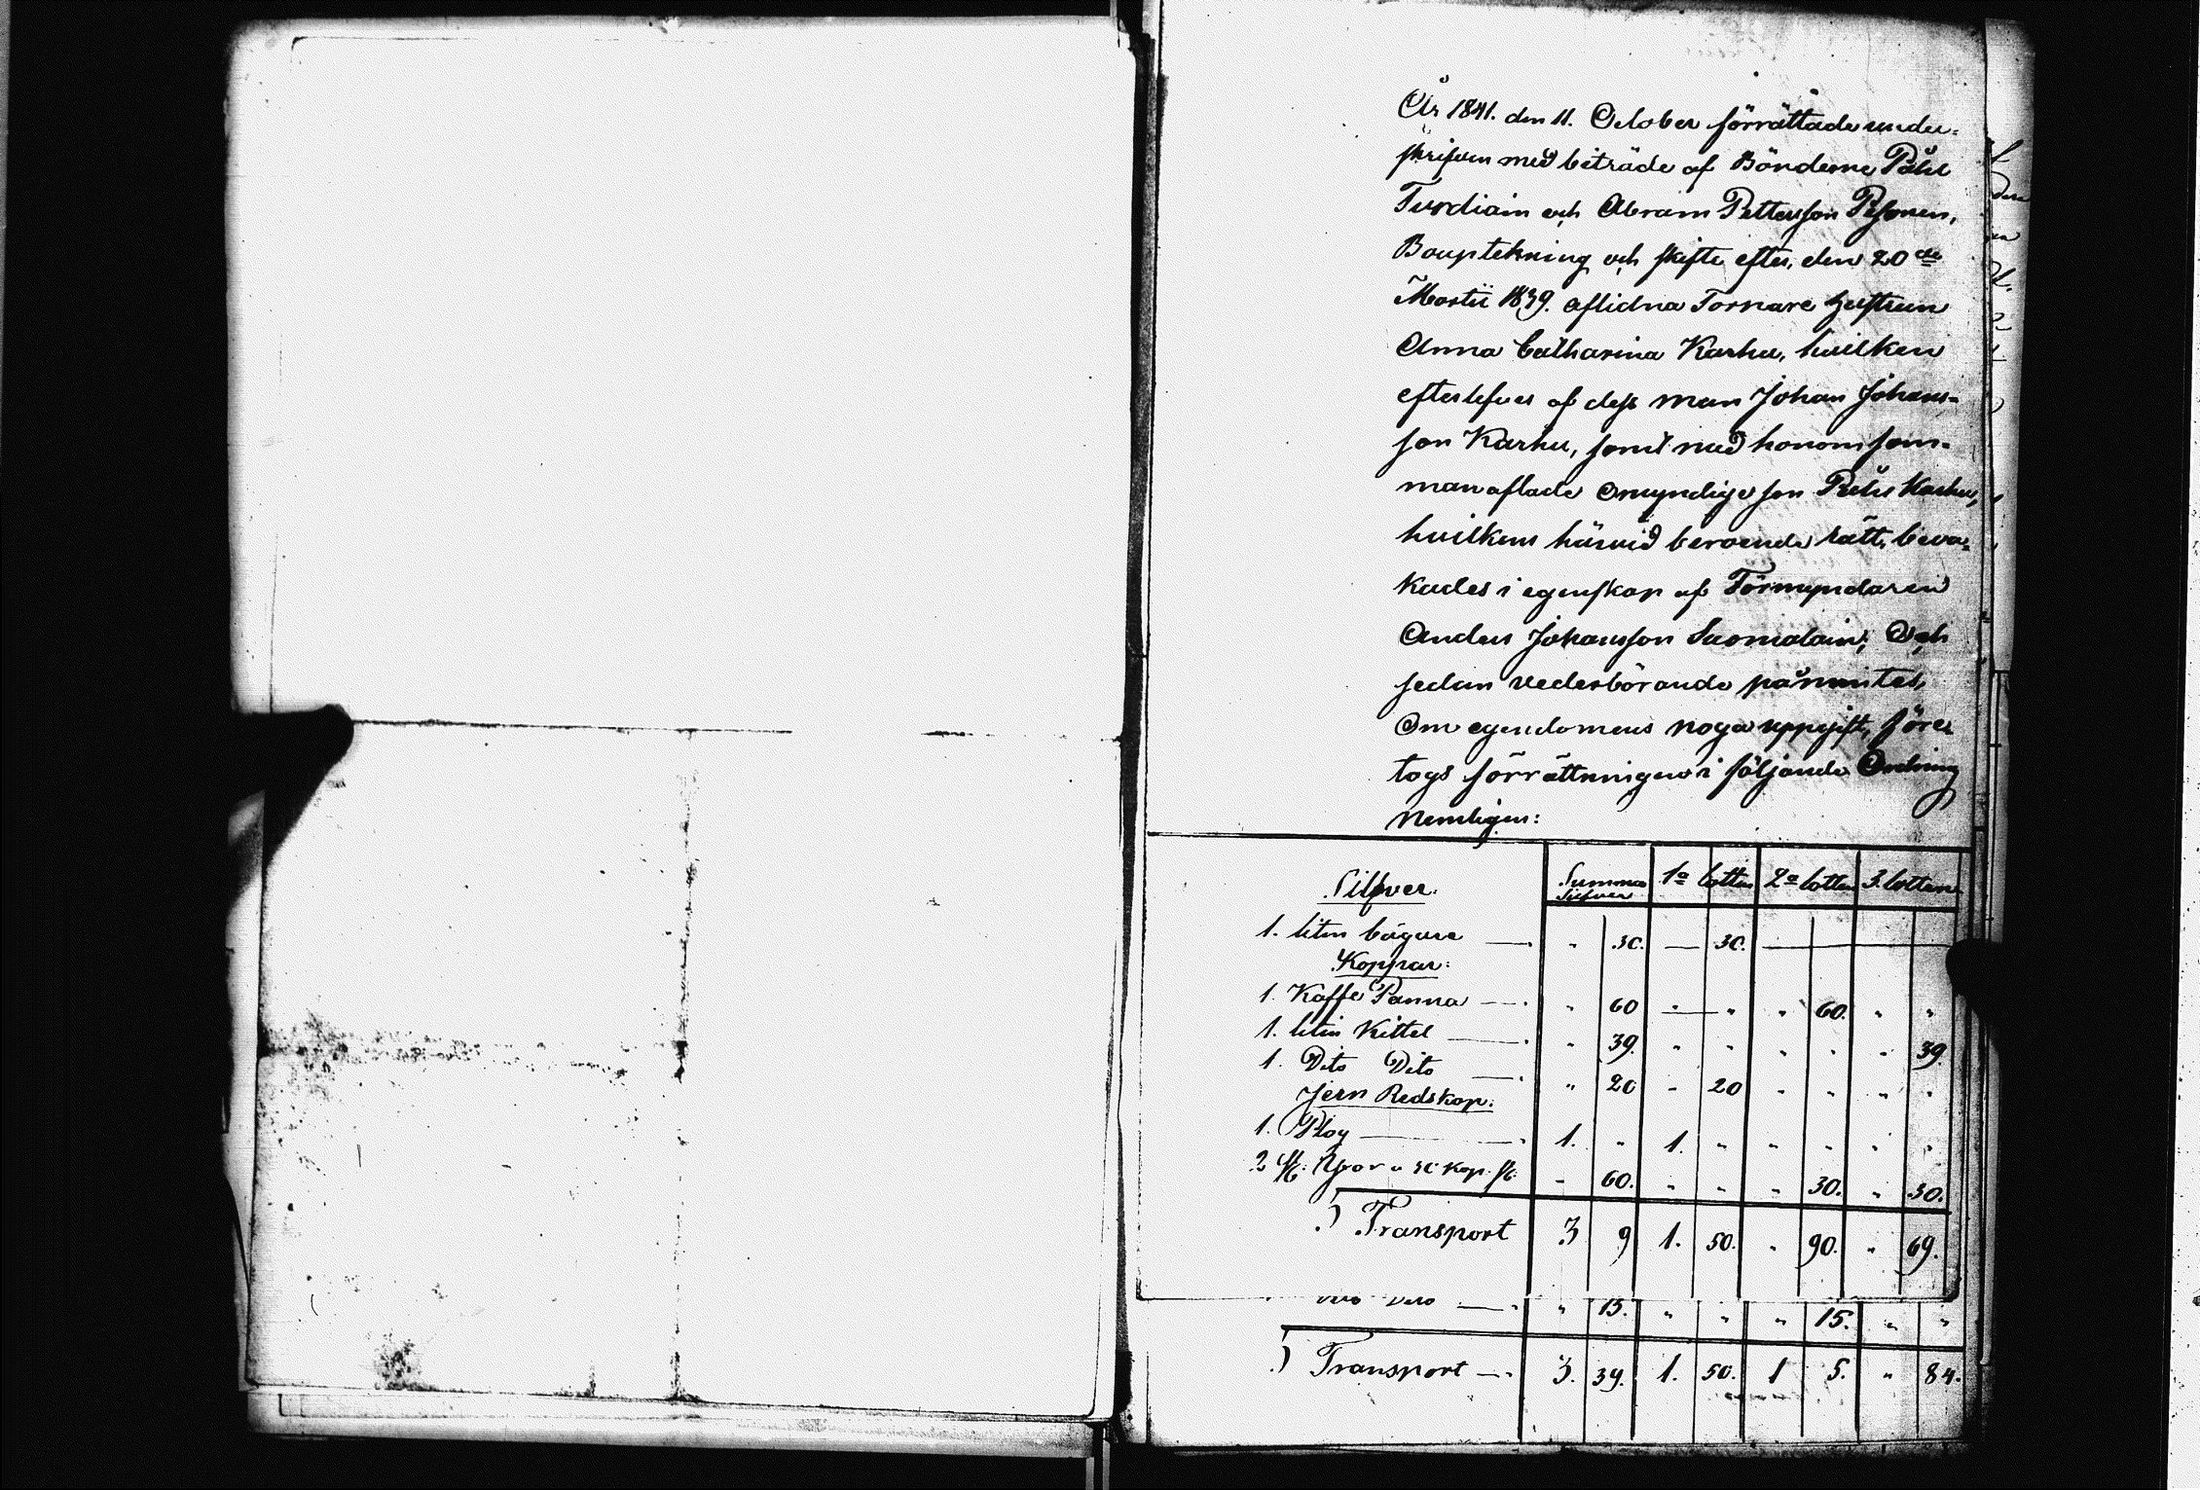 År 1841. den 11. October förrättade under-
skrifven med biträde af Bönderne Påhl
Turdiain och Abram Pettersson Pesonen,
Bouptekning och skifte efter, den 20de
Martii 1839. aflidna Tornare hustrun
Anna Catharina Karhu, hvilken
efterlefves af dess man Johan Johans-
son Karhu, samt med honom sam-
man aflade omyndige son Påhl Karhu,
hvilkens härvid beroende rätt, beva-
kades i egenskap af Förmyndaren
Anders Johansson Suomalain; Och
sedan vederbörande påmintes,
Om egendomens noga uppgift, före-
togs förrättningen i följande Ordning
Nemligen:
Silfver. Summa Silfver 1a Lotten 2a Lotten 3. Lotten
1. liten bägare — " 30. — 30. —
Koppar:
1. Kaffe Panna — " 60 — " " 60. " "
1. liten Kittel — " 39. " " " " " 39
1. Dito Dito — " 20 - 20 " " " "
Jern Redskap:
1. Plog — 1. " 1. " " " " "
2 st: Yxor a 30 kop. st. - 60. " " " 30. " 30.
Transport 3 9 1. 50. " 90. " 69.
Dito Dito — " 15. " " " 15. " "
Transport — 3. 39. 1. 50. 1 5. " 84.